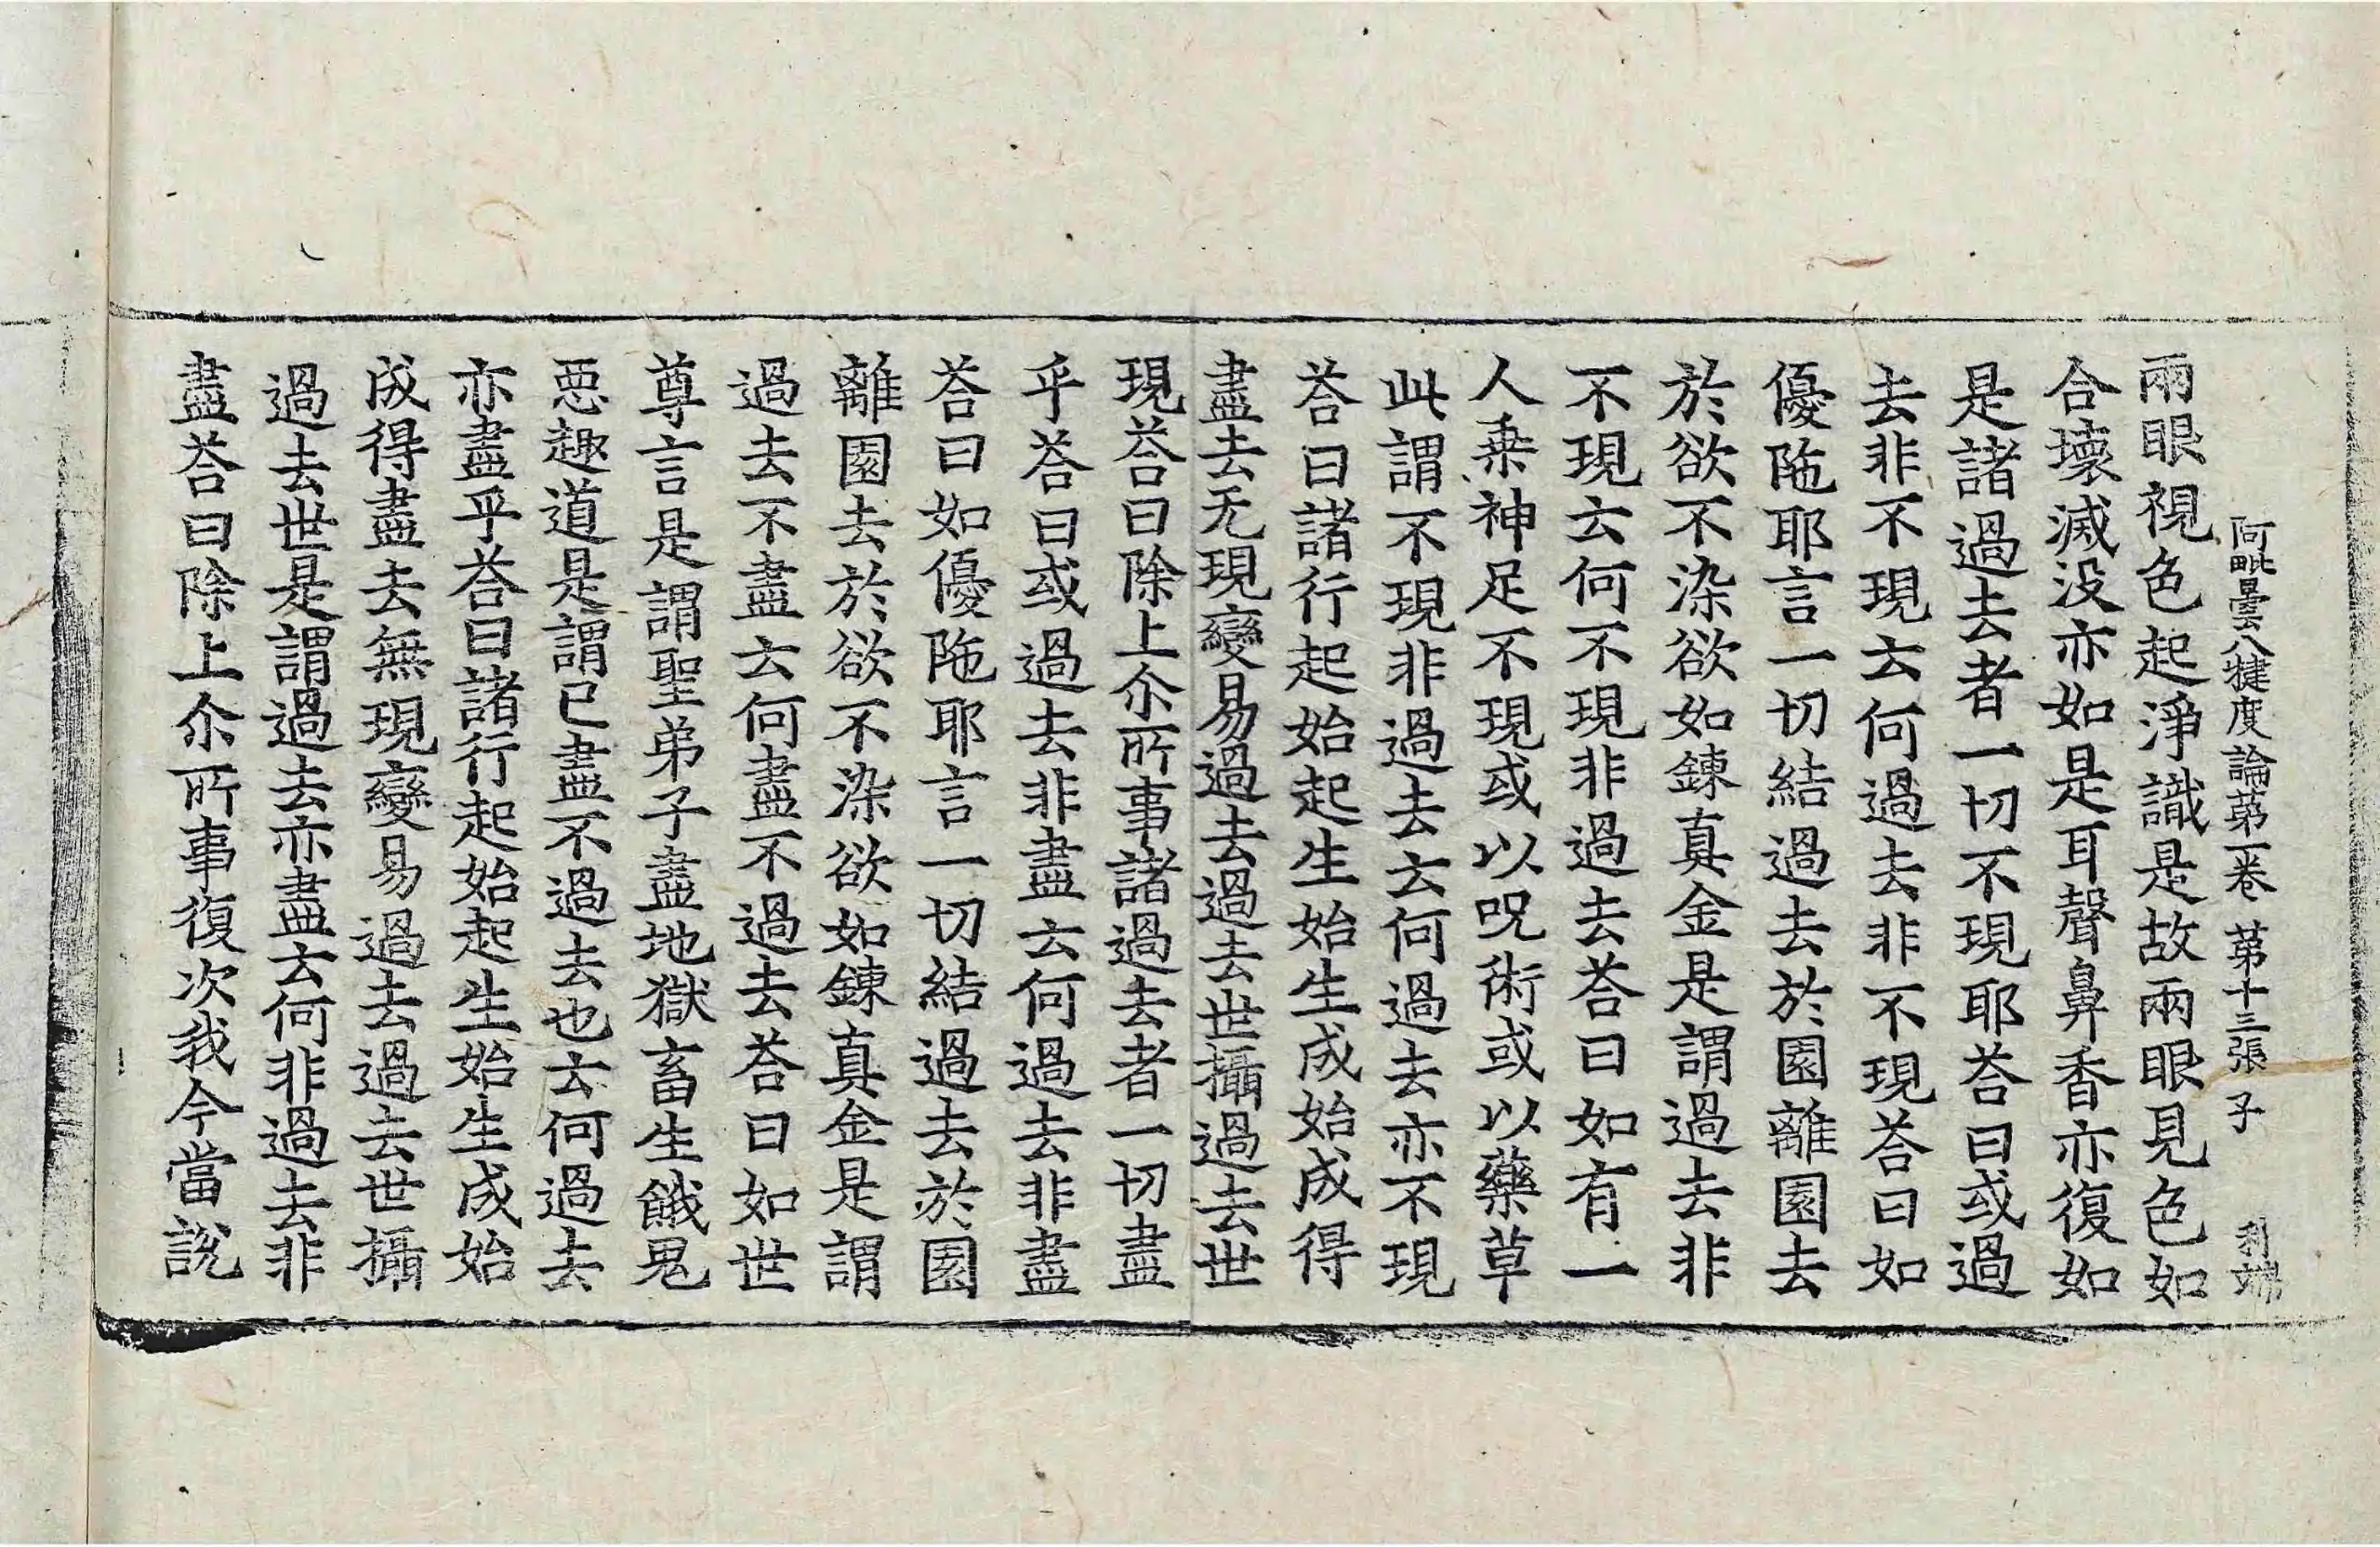 阿毗曇八犍度論第一卷 第十三張 子 利端
兩眼視色起淨識是故兩眼見色如
合壞滅没亦如是耳聲鼻香亦復如
是諸過去者一切不現耶荅曰或過
去非不現云何過去非不現荅曰如
優陁耶言一切結過去於園離園去
於欲不染欲如鍊真金是謂過去非
不現云何不現非過去荅曰如有一
人乗神足不現或以呪術或以藥草
此謂不現非過去云何過去亦不現
荅曰諸行起始起生始生成始成得
盡去无現變易過去過去世攝過去世
現荅曰除上尒所事諸過去者一切盡
乎荅曰或過去非盡云何過去非盡
荅曰如優陁耶言一切結過去於園
離園去於欲不染欲如鍊真金是謂
過去不盡云何盡不過去荅曰如世
尊言是謂聖弟子盡地獄畜生餓鬼
惡趣道是謂已盡不過去也云何過去
亦盡乎荅曰諸行起始起生始生成始
成得盡去無現變易過去過去世攝
過去世是謂過去亦盡云何非過去非
盡荅曰除上尒所事復次我今當説